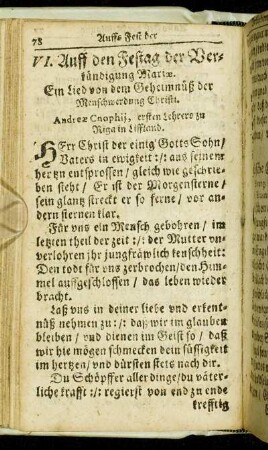 78 Auffs Fest der
VI. Auff den Festag der Ver-
kündigung Mariæ.
Ein Lied von dem Geheimnüß der
Menschwerdung Christi.
Andreæ Cnophij, ersten Lehrers zu
Riga in Liffland.
HErr Christ der einig Gotts Sohn/
Vaters in ewigkeit :/: aus seinem
hertzn entsprossen / gleich wie geschrie-
ben steht / Er ist der Morgensterne /
sein glantz streckt er so ferne / vor an-
dern sternen klar.
Für uns ein Mensch gebohren / im
letzten theil der zeit :/: der Mutter un-
verlohren jhr jungfräwlich keuschheit:
Den todt für uns zerbrochen/den Him-
mel auffgeschlossen / das leben wieder
bracht.
Laß uns in deiner liebe und erkent-
nüß nehmen zu :/: daß wir im glauben
bleiben / und dienen im Geist so / daß
wir hie mögen schmecken dein süssigkeit
im hertzen/ und dürsten stets nach dir.
Du Schöpffer aller dinge/du väter-
liche krafft :/: regierst von end zu ende
krefftig